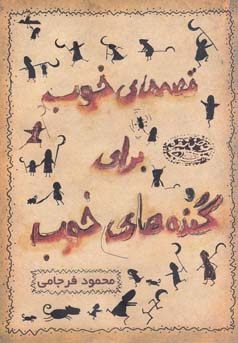 قصه‌های خوب
برای
گنده‌های خوب
محمود فرجامی